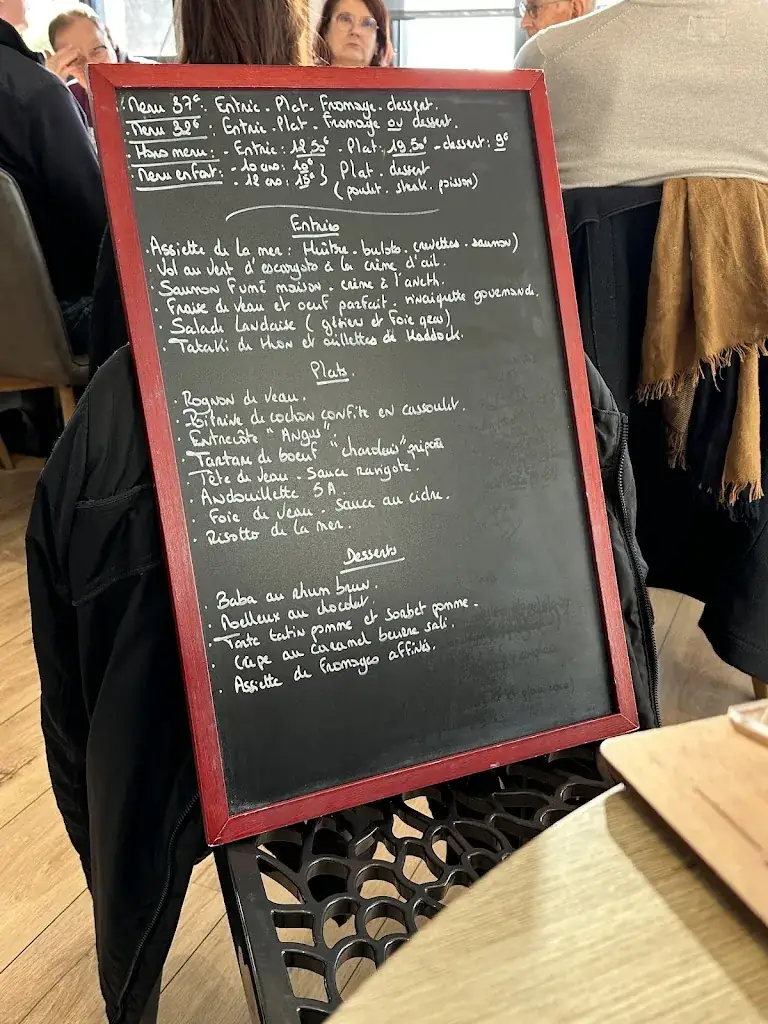 Menu 37€ : Entrée - Plat - Fromage - dessert.
Menu 32€ : Entrée - Plat - Fromage ou dessert.
Hors menu : - Entrée : 12,50€ - Plat : 19,50€ - dessert : 9€
Menu enfant : - 10 ans : 10€ } Plat - dessert
- 12 ans : 15€ (poulet. steak. poisson)
Entrées
Assiette de la mer : Huître - bulots - crevettes - saumon)
· Vol au vent d'escargots à la crème d'ail.
· Saumon Fumé maison - crème à l'aneth.
· Fraise de veau et oeuf parfait - vinaigrette gourmande.
· Salade Landaise ( gésier et Foie gras)
· Tataki de thon et rillettes de Haddock.
Plats.
· Rognon de veau.
· Poitrine de cochon confite en cassoulet.
· Entrecôte "Angus"
· Tartare de boeuf "charolais" préparé
· Tête de veau - sauce ravigote.
· Andouillette 5A.
· Foie de veau - sauce au cidre.
· Risotto de la mer.
Desserts
· Baba au rhum brun.
· Moelleux au chocolat.
· Tarte tatin pomme et sorbet pomme.
· Crêpe au caramel beurre salé.
· Assiette de Fromages affinés.